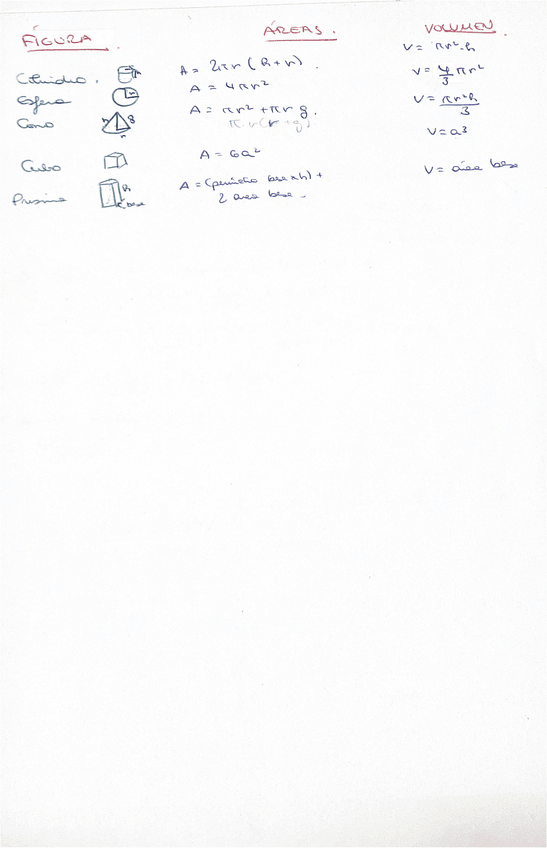 FIGURA. ÁREAS. VOLUMEN.
Cilindro. r A = 2πr (h+r). V = πr²·h
Esfera r A = 4πr² V = 4/3 πr²
Cono h g r A = πr² + πr g. V = πr²h/3
π·r(r+g)
Cubo A = 6a² V = a³
Prisma h base A = (perímetro base x h) + V = área base
2 area base.